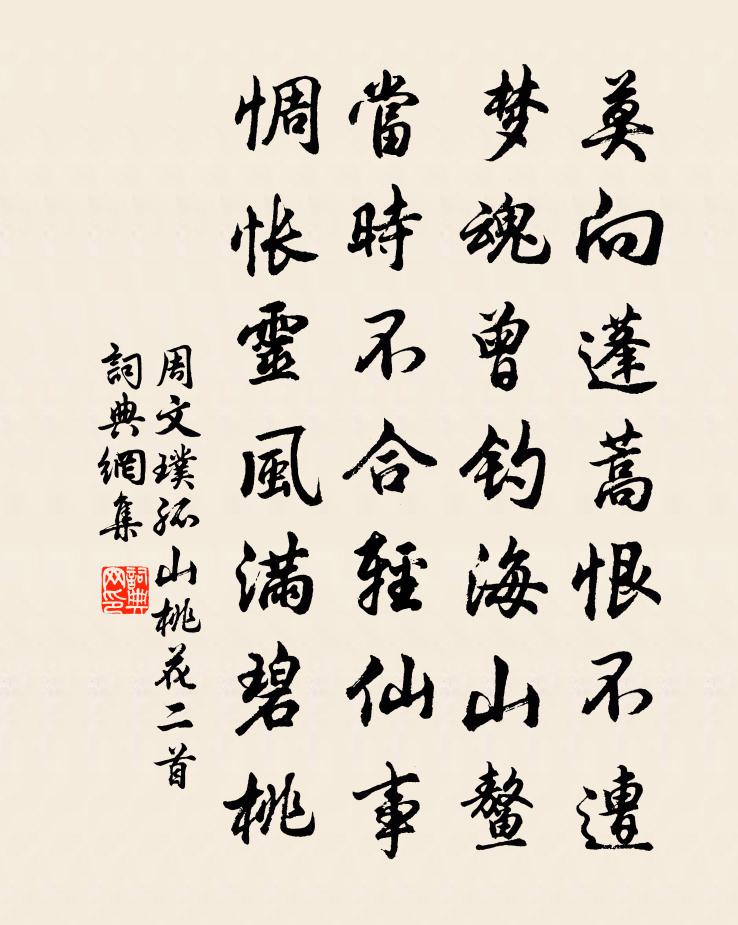 莫向蓬蒿恨不遭
梦魂曾钓海山鳌
當時不合輕仙事
惆怅靈風满碧桃
周文璞孤山桃花二首
詞典網集
詞典网印